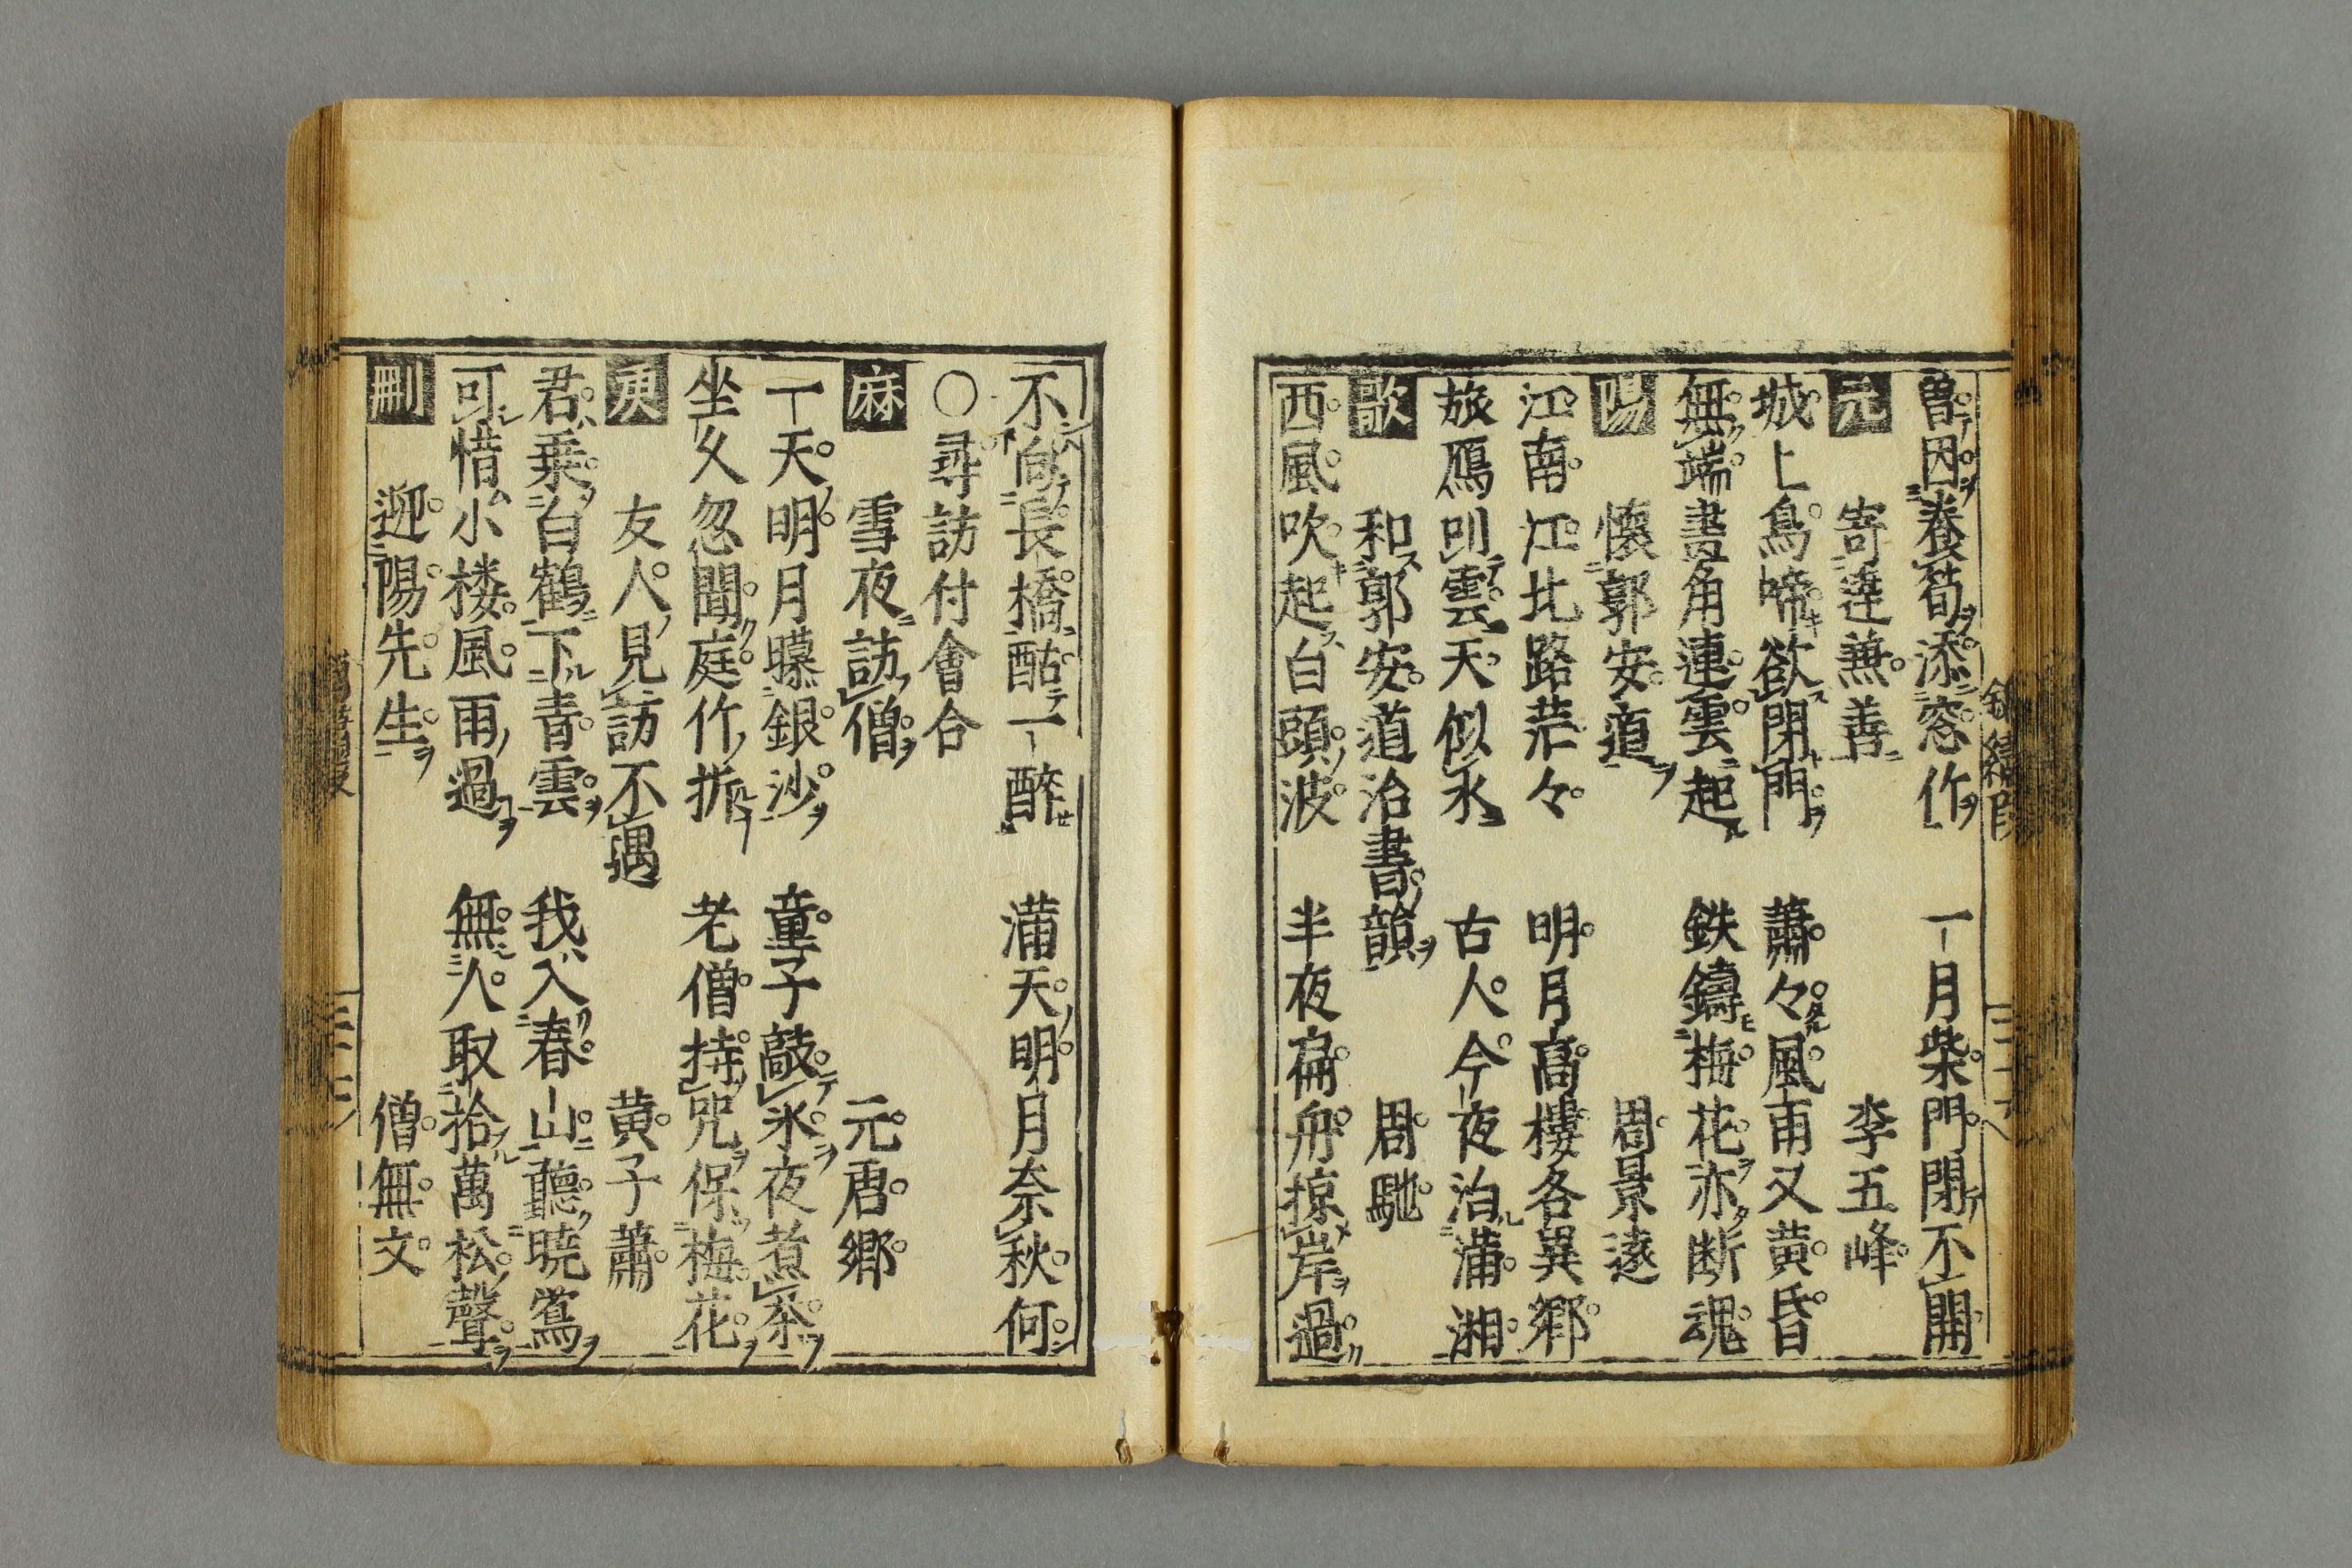 曽因養荀添窓作　一月柴門閉不開
元　寄達兼善　李五峰
城上烏啼欲閉門　蕭々風雨又黄昏
無端畫角連雲起　鉄鑄梅花亦断魂
陽　懷郭安道　周景遠
江南江北路茫々　明月髙樓各異郷
旅鴈叫雲天似水　古人今夜泊蒲湘
歌　和郭安道治書韻　周馳
西風吹起白頭波　半夜扁舟掠岸過
不向長橋酤一醉　满天明月奈秋何
○尋訪付會合
麻　雪夜訪僧　元唐卿
一天明月曝銀沙　童子敲氷夜煮茶
坐久忽聞庭竹折　老僧持咒保梅花
庚　友人見訪不遇　黄子蕭
君乗白鶴下青雲　我入春山聽暁鴬
可惜小楼風雨過　無人取拾萬松聲
刪　迎陽先生　僧無文